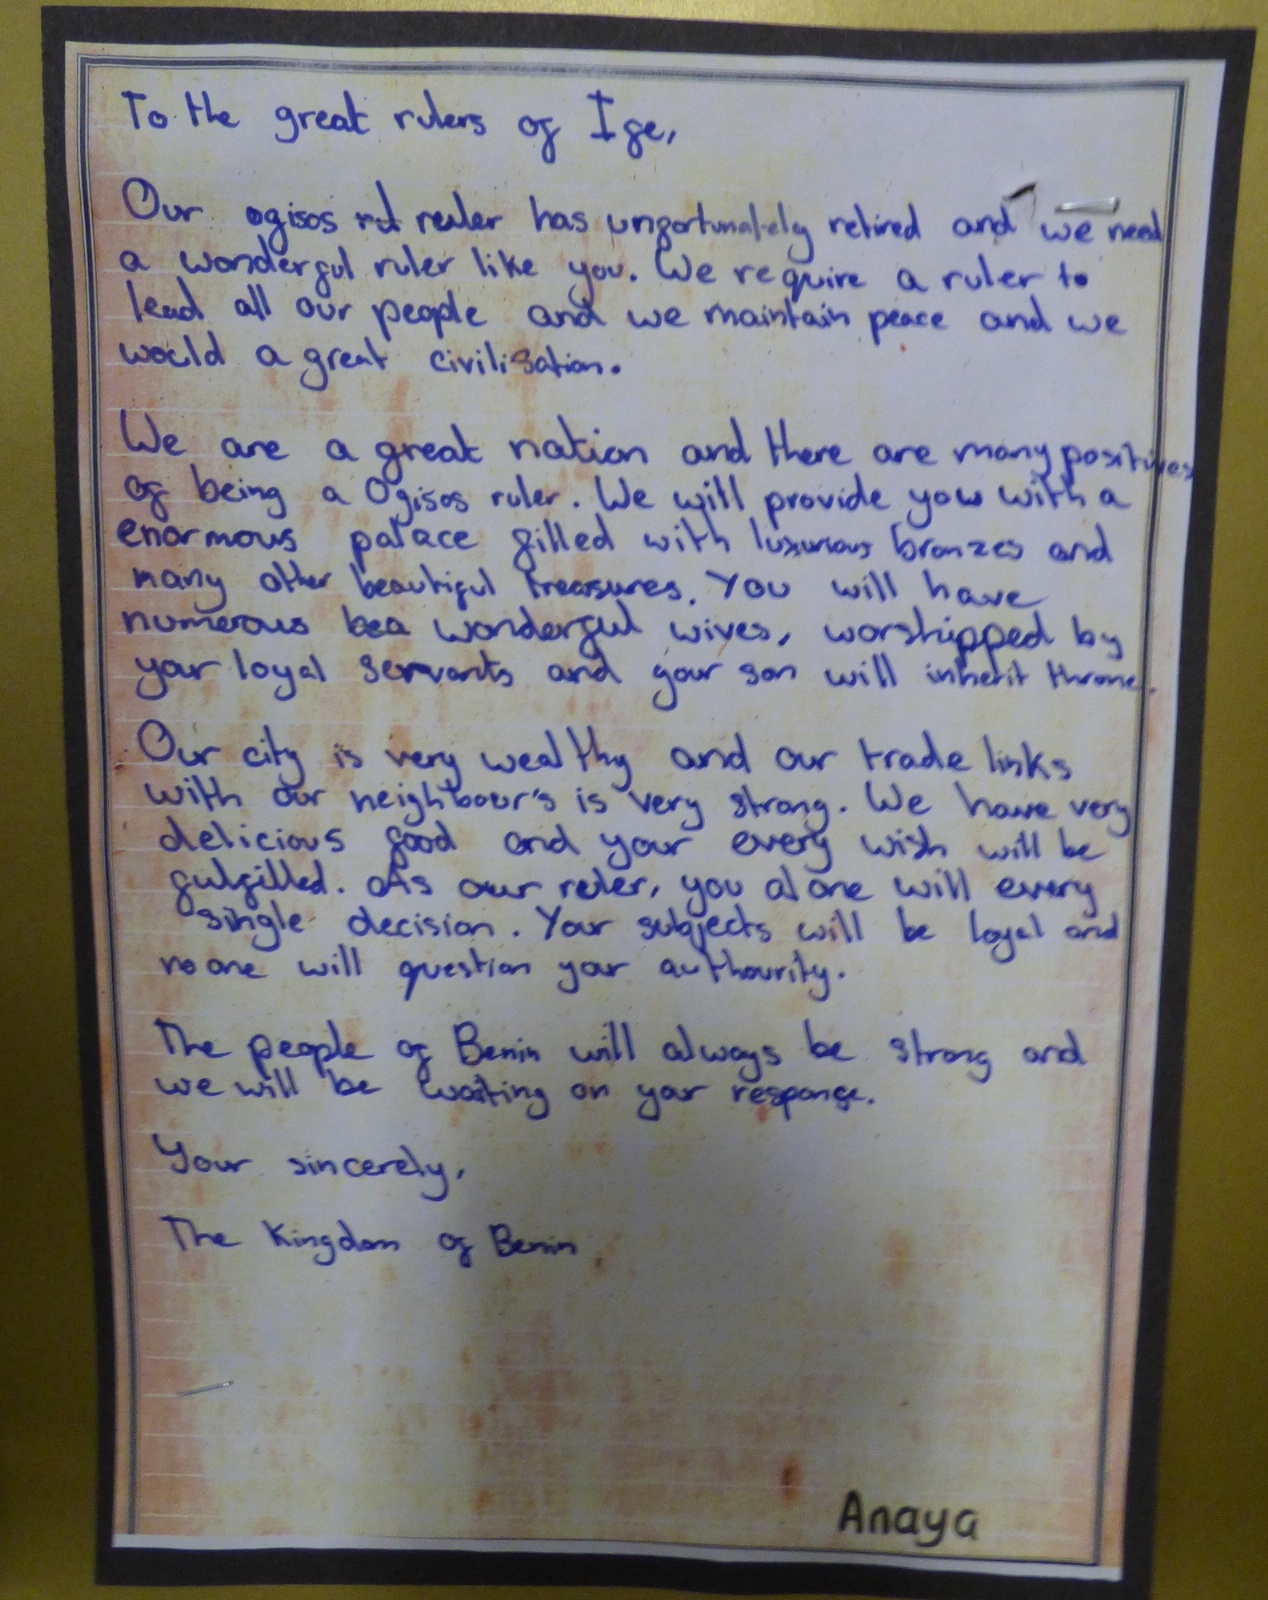 To the great rulers of Ife,
Our ogisos ruler has unfortunately retired and we need
a wonderful ruler like you. We require a ruler to
lead all our people and we maintain peace and we
would a great civilisation.
We are a great nation and there are many positives
of being a Ogisos ruler. We will provide you with a
enormous palace filled with luxurious bronzes and
many other beautiful treasures. You will have
numerous bea wonderful wives, worshipped by
your loyal servants and your son will inherit throne.
Our city is very wealthy and our trade links
with our neighbour's is very strong. We have very
delicious food and your every wish will be
fulfilled. As our ruler, you alone will every
single decision. Your subjects will be loyal and
no one will question your authourity.
The people of Benin will always be strong and
we will be waiting on your response.
Your sincerely,
The Kingdom of Benin
Anaya